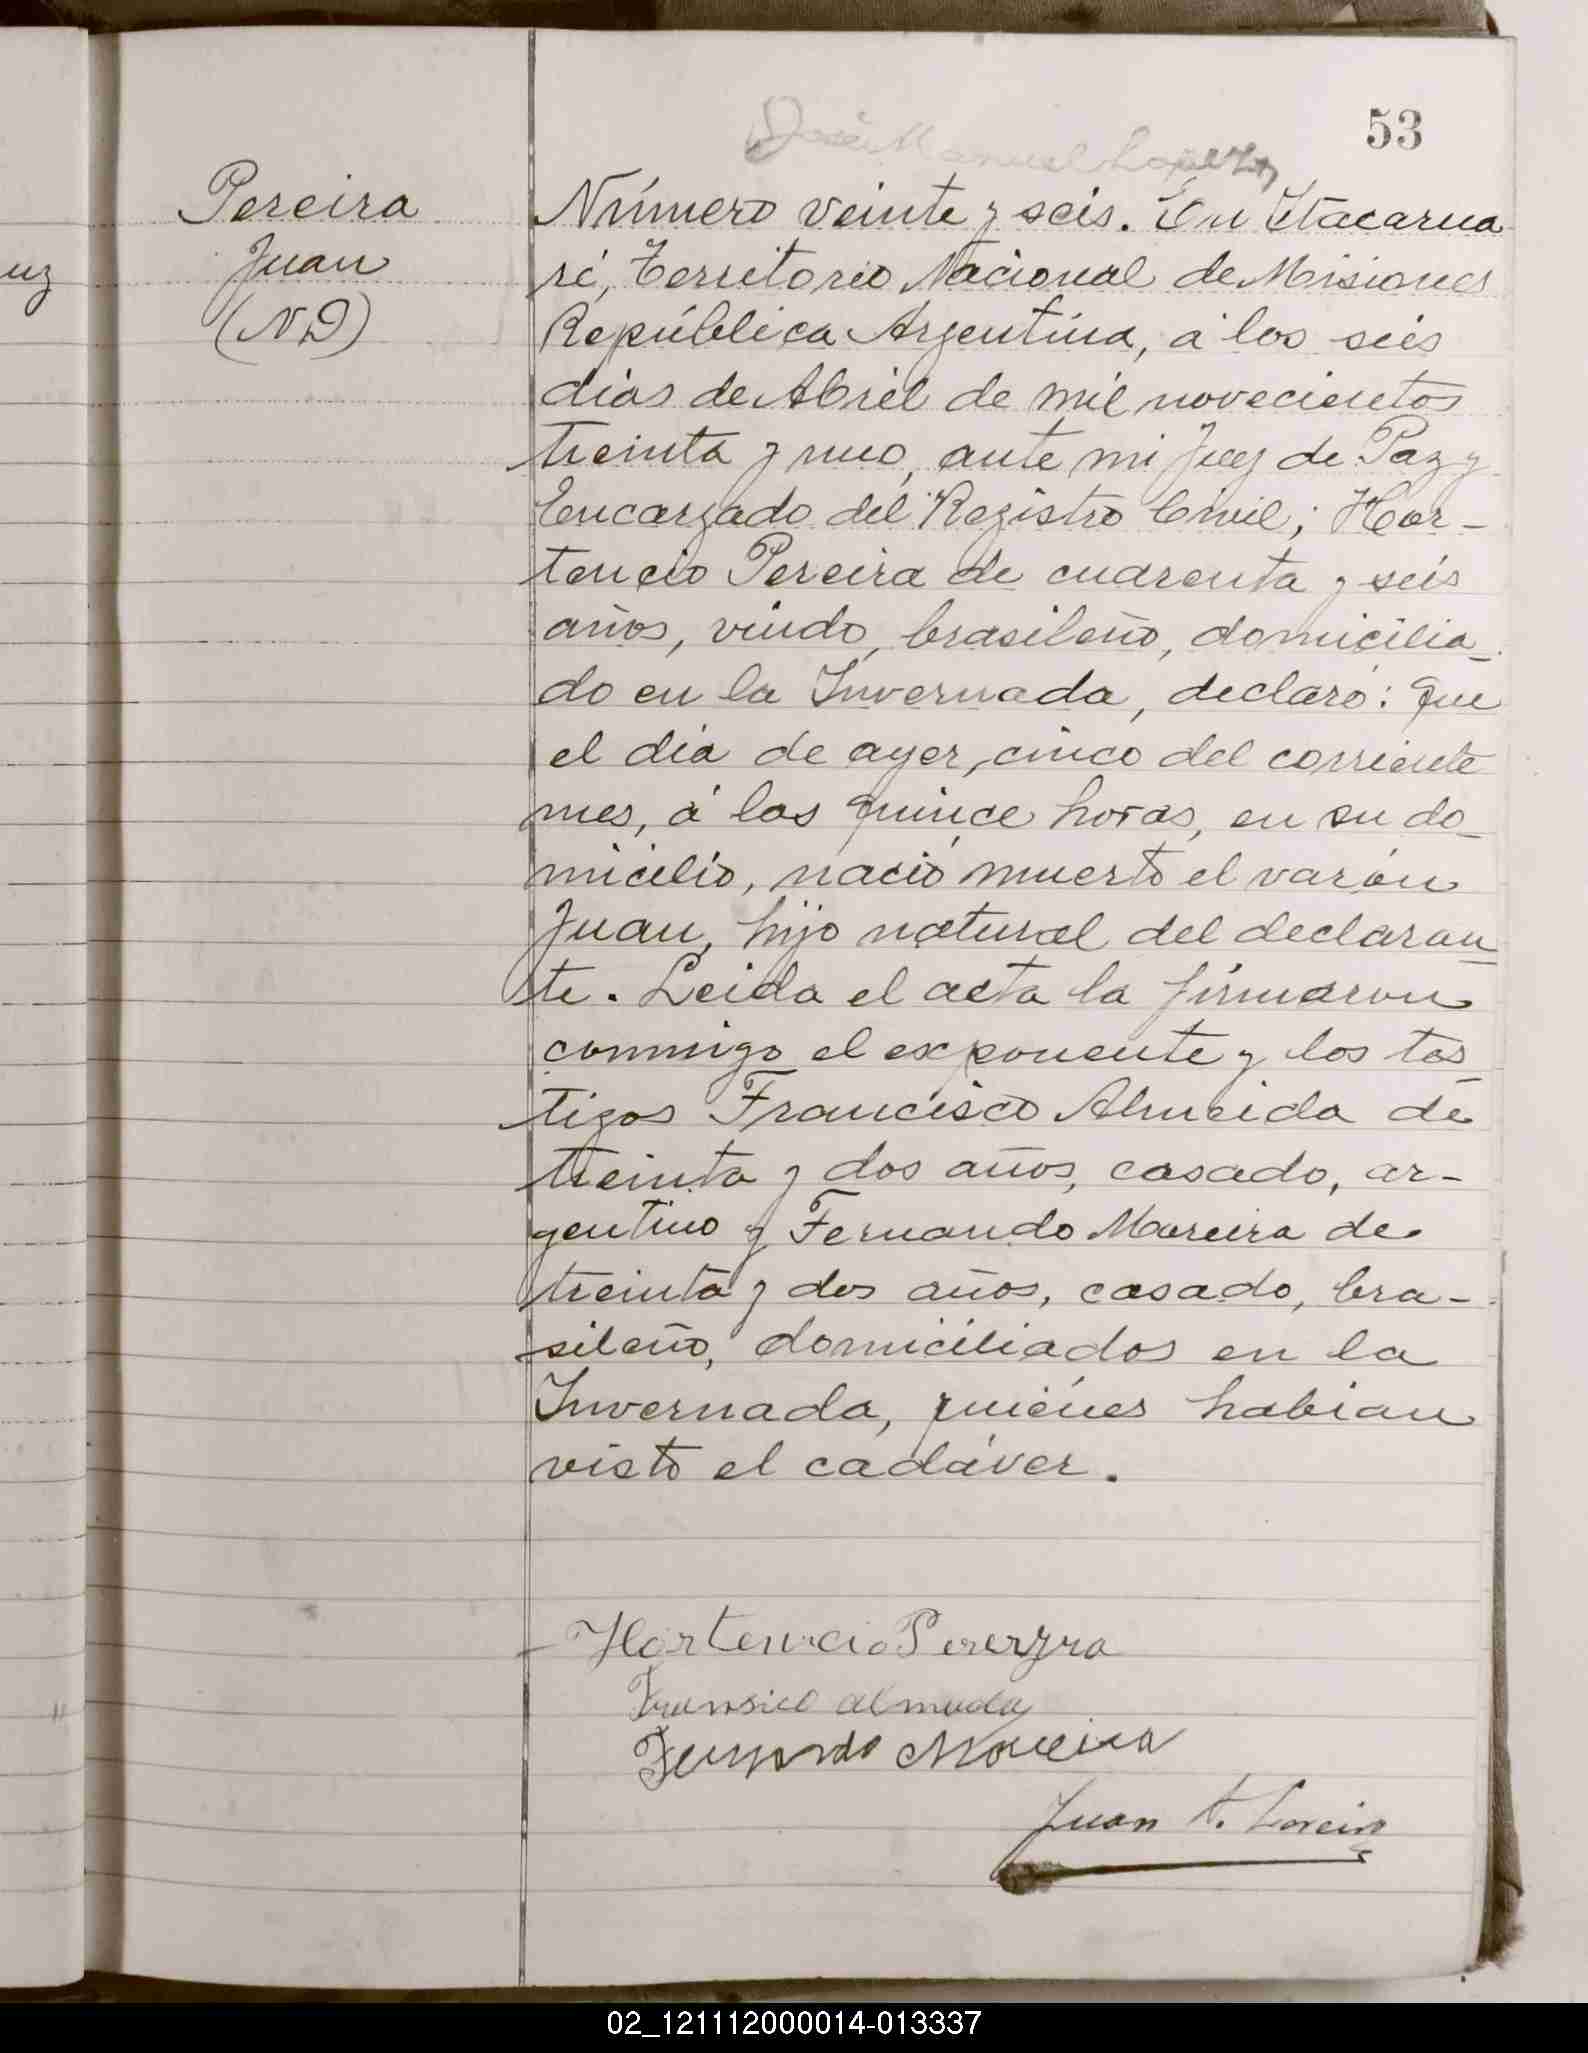 53
José Manuel Lopez
Pereira
Juan
(ND)
uz
Número veinte y seis. En Itacarua
ré, Territorio Nacional de Misiones
República Argentina, á los seis
días de Abril de mil novecientos
treinta y uno, ante mi Juez de Paz y
Encargado del Registro Civil; Hor-
tencio Pereira de cuarenta y seis
años, viudo, brasileño, domicilia_
do en la Invernada, declaró: que
el día de ayer, cinco del corriente
mes, á las quince horas, en su do_
micilio, nació muerto el varón
Juan, hijo natural del declaran_
te. Leida el acta la firmaron
conmigo el exponente y los tes_
tigos Francisco Almeida de
treinta y dos años, casado, ar-
gentino y Fernando Moreira de
treinta y dos años, casado, bra-
sileño, domiciliados en la
Invernada, quiénes habian
visto el cadáver.
Hortencio Pererzra
Fransico almeda
Fernando Moreira
Juan A.
02_121112000014-013337